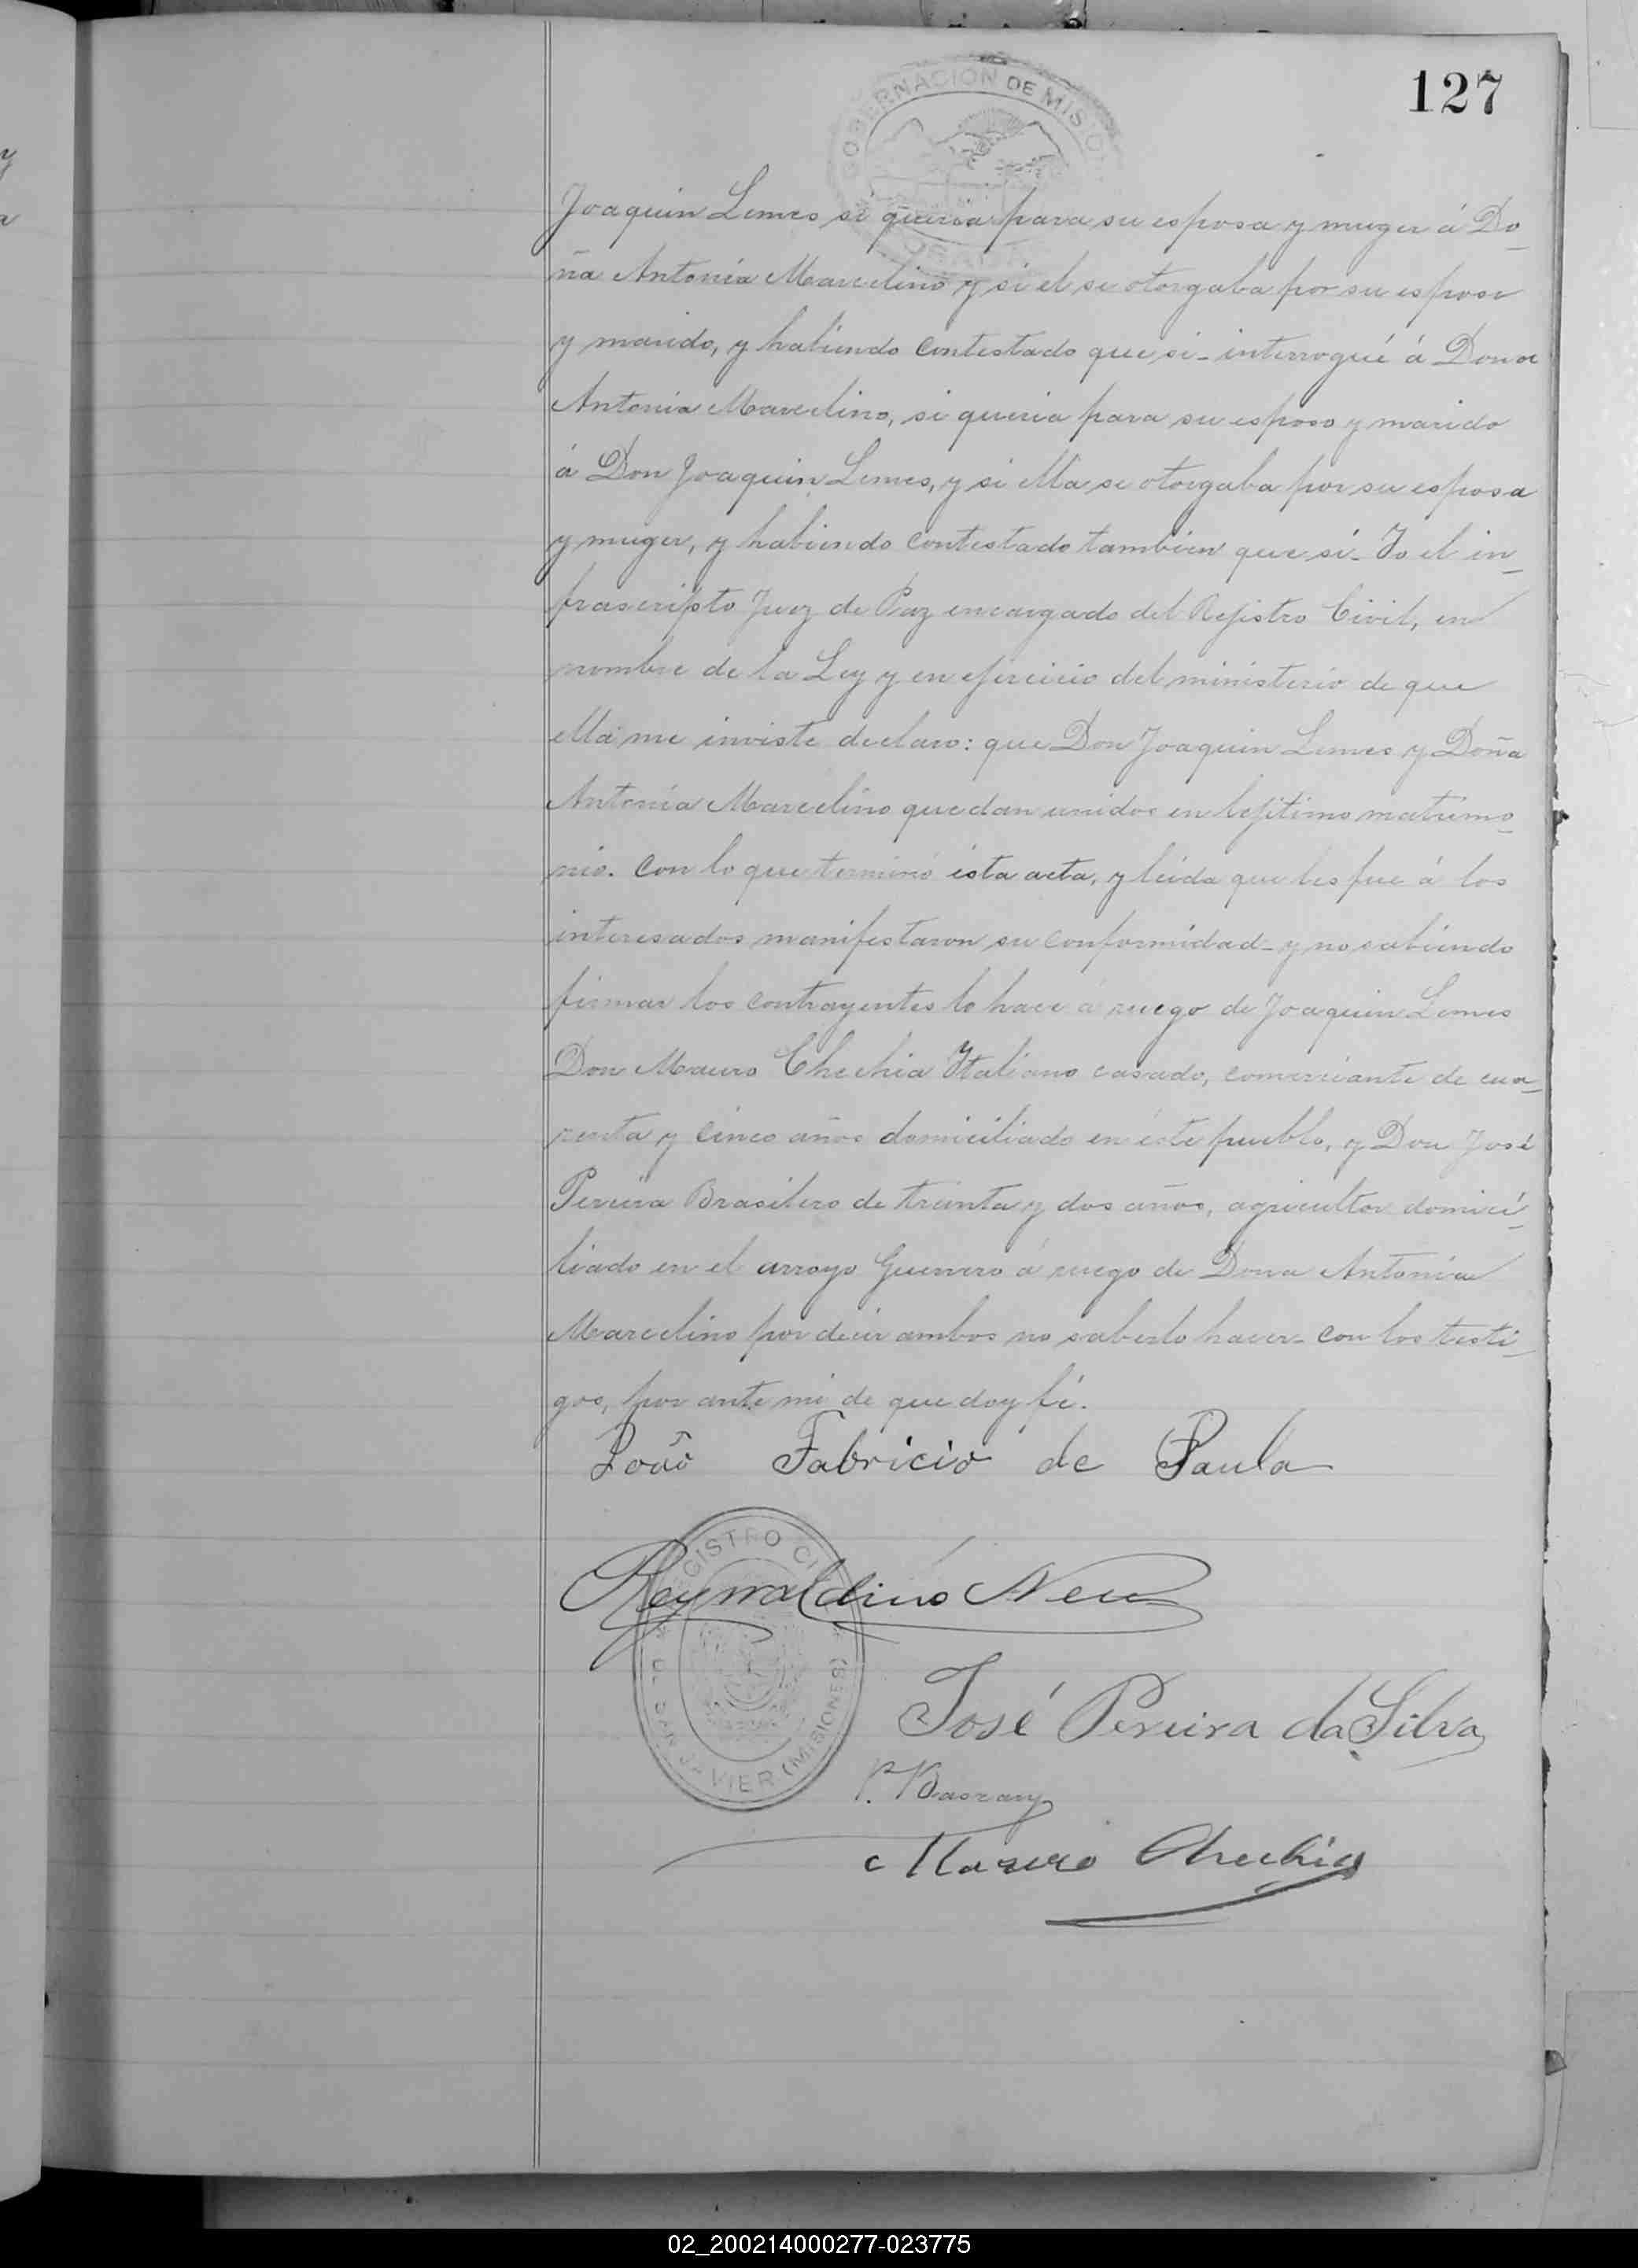 GOBERNACION DE MISIO
127
Joaquin Lemes si queria para su esposa y muger á Do_
ña Antonia Marcelino y si el se otorgaba por su esposo
y marido, y habiendo contestado que si_ interrogué á Dona
Antonia Marcelino, si queria para su esposo y marido
á Don Joaquin Lemes, y si ella se otorgaba por su esposa
y muger, y habiendo contestado tambien que si_ Yo el in_
frascripto Juez de Paz encargado del Rejistro Civil, en
nombre de la Ley y en ejercicio del ministerio de que
ella me inviste declaro: que Don Joaquin Lemes y Doña
Antonia Marcelino quedan unidos en lejitimo matrimo_
nio. Con lo que terminó ésta acta, y leida que les fue á los
interesados manifestaron su conformidad_ y no sabiendo
firmar los contrayentes lo hace á ruego de Joaquin Lemes
Don Mauro Chechia Ytaliano casado, comerciante de cua_
renta y cinco años domiciliado en éste pueblo, y Don José
Pereira Brasilero de treinta y dos años, agricultor domici_
liado en el arroyo Guerrero á ruego de Dona Antonia
Marcelino por decir ambos no saberlo hacer_ con los testi_
gos, por ante mi de que doy fé.
João Fabricio de Paula
Reynaldino Neu
REGISTRO CI
DE SAN JAVIER (MISIONES)
José Pereira da Silva
Mauro Chechia
02_200214000277-023775